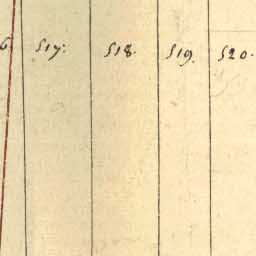 6 517: 518. 519. 520.